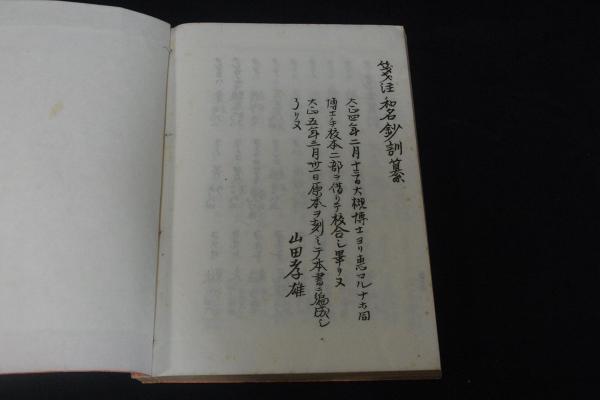 箋注和名鈔訓纂
大正四年二月十三日大槻博士ヨリ恵マル ナホ同
博士ノ手校本二部ヲ借リテ校合シ畢リヌ
大正五年三月廿一日原本ヲ刻ミテ本書ヲ編成シ
了リヌ
山田孝雄